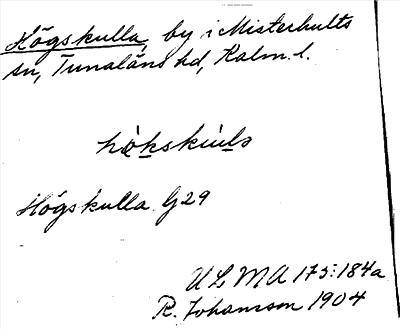 Högskulla, by i Misterhults
sn, Tunaläns hd, Kalm. l.
hòkskùlɑ
Högskulla G 29
ULMA 175:184a
R. Johansson 1904